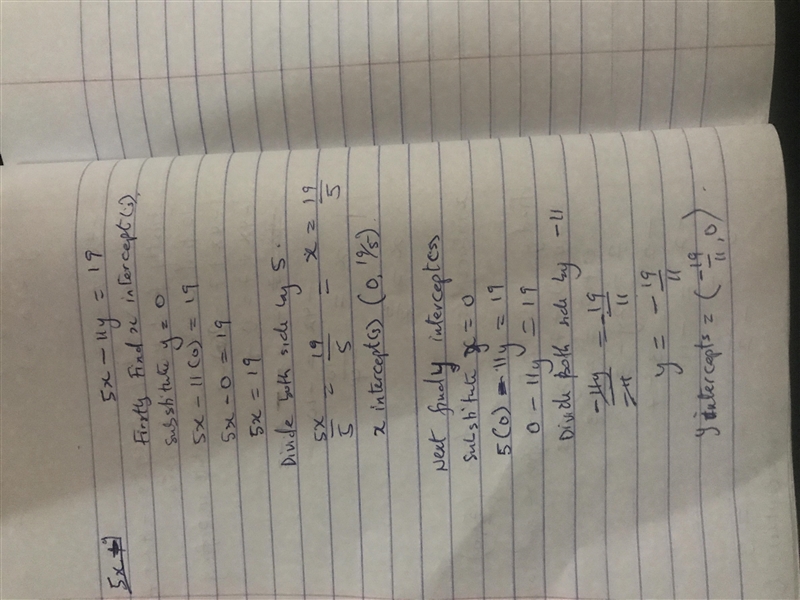 5x - 11y = 19
Firstly Find x intercept(s)
Substitute y = 0
5x - 11(0) = 19
5x - 0 = 19
5x = 19
Divide both side by 5.
5x/5 = 19/5 = x = 19/5
x intercept(s) (0, 19/5)
Next findy intercepts
Substitute x = 0
5(0) - 11y = 19
0 - 11y = 19
Divide both side by -11
-11y/-11 = -19/11
y = -19/11
y intercepts = (-19/11, 0).